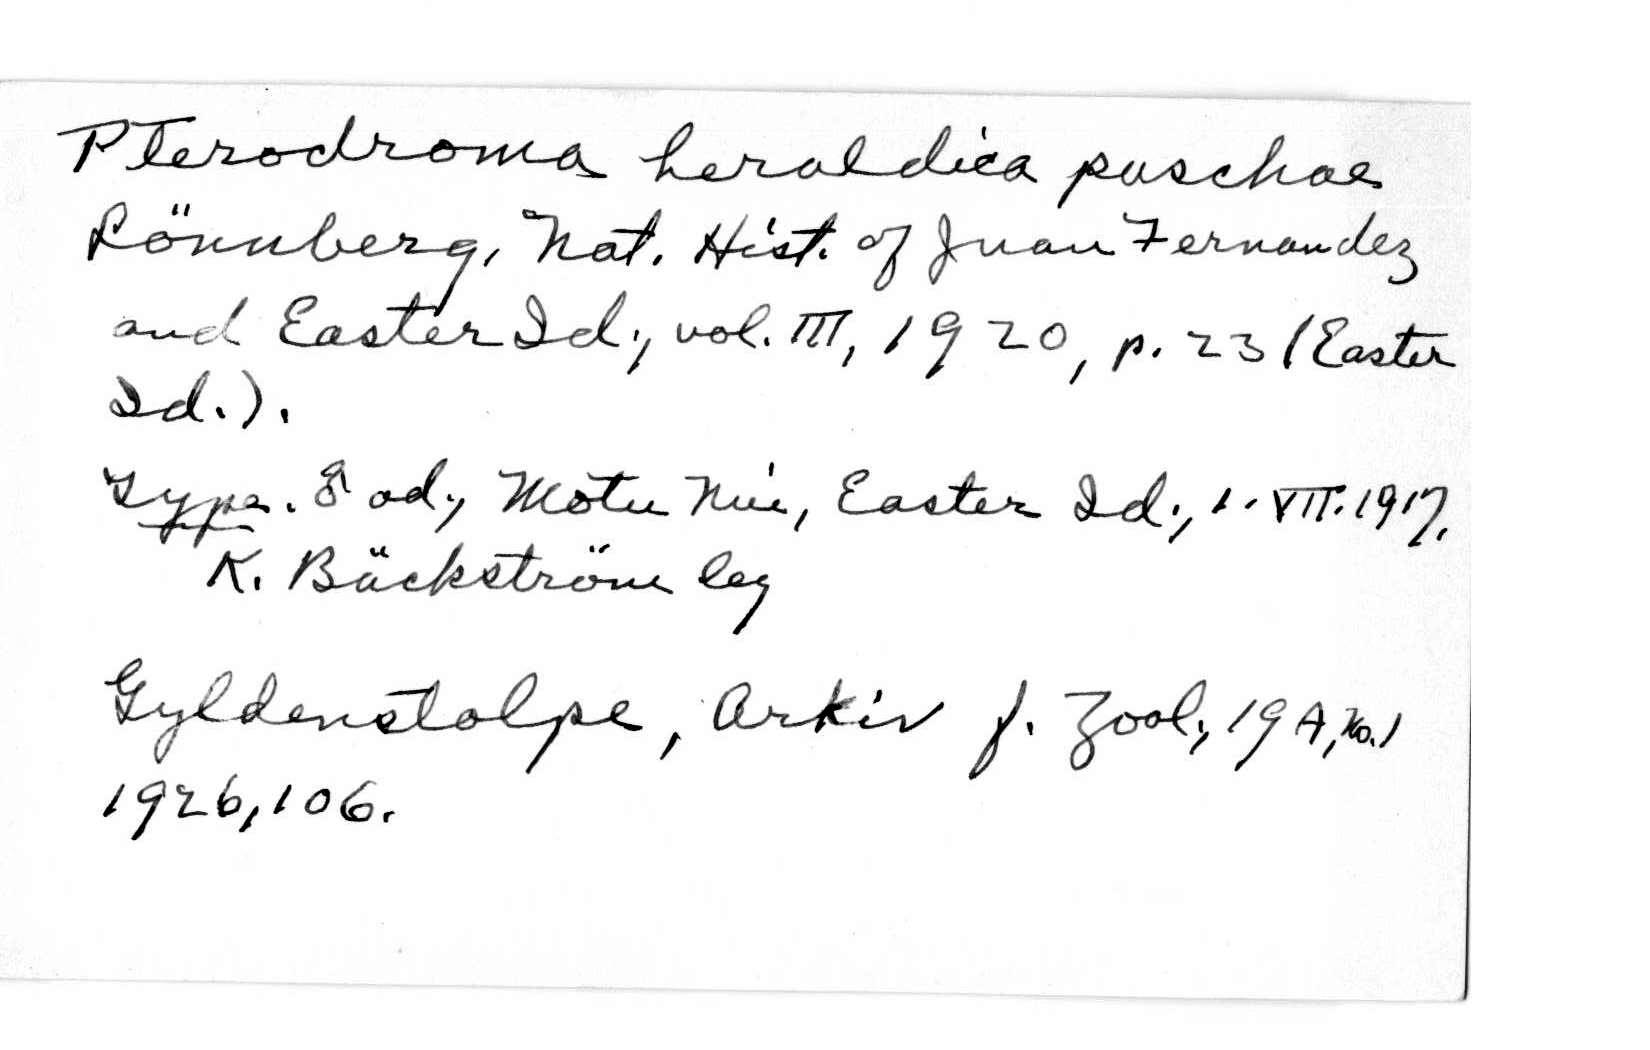 Pterodroma heraldica paschae
Lönnberg, Nat. Hist. of Juan Fernandez
and Easter Id., vol. III, 1920, p. 23 (Easter
Id.).
Type. ♂ ad., Motu Nui, Easter Id., 1. VII. 1917,
K. Bäckström leg
Gyldenstolpe, Arkiv f. Zool., 19 A, No. 1
1926, 106.